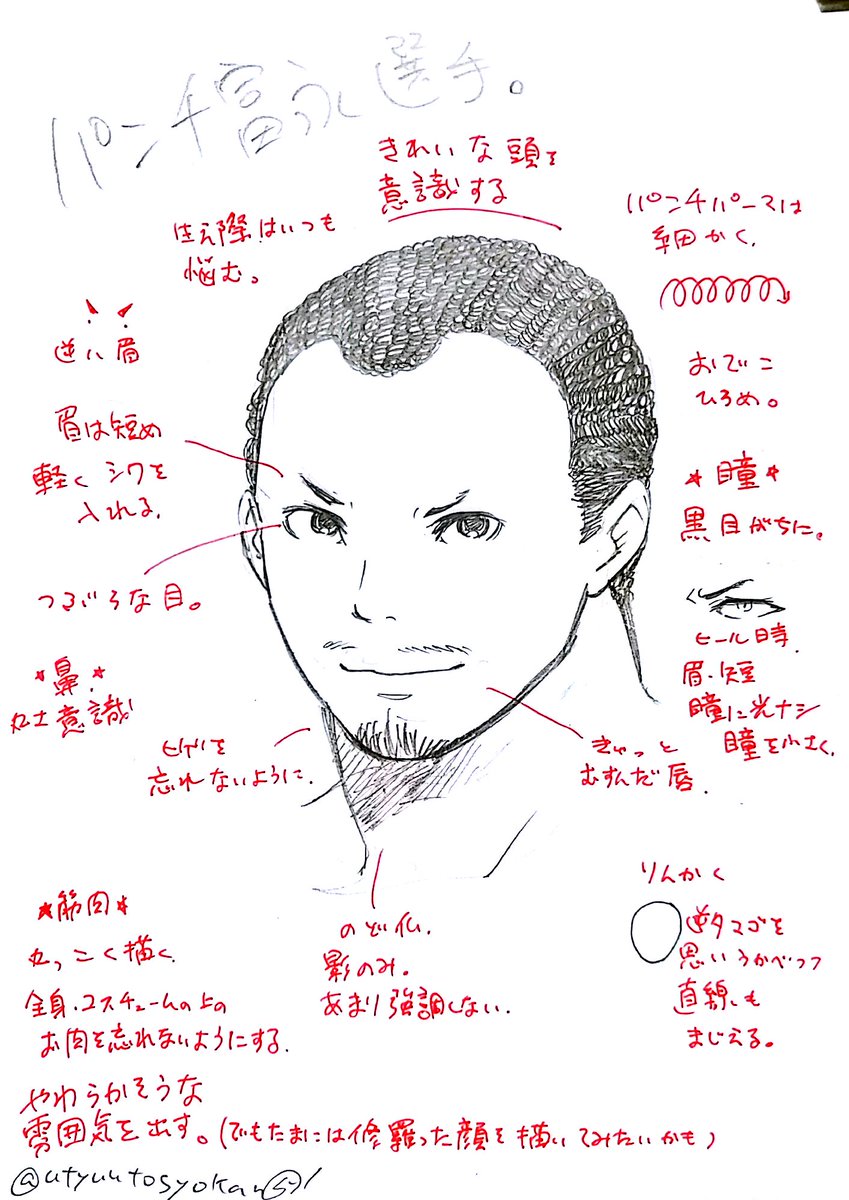 パンチ富永選手。
きれいな頭を
意識する
生え際はいつも
悩む。
パンチパーマは
細かく、
逆ハ眉
おでこ
ひろめ。
眉は短め
軽くシワを
入れる。
*瞳*
黒目がちに。
つぶらな目。
ヒール時、
眉・短
瞳に光ナシ
瞳を小さく、
*鼻*
丸さ意識
ヒゲを
忘れないように、
きゅっと
むすんだ唇、
りんかく
逆タマゴを
思いうかべつつ
直線も
まじえる。
*筋肉*
丸っこく描く、
全身・コスチュームの上の
お肉を忘れないようにする、
のど仏、
影のみ。
あまり強調しない、
やわらかそうな
雰囲気を出す。(でもたまには修羅った顔を描いてみたいかも)